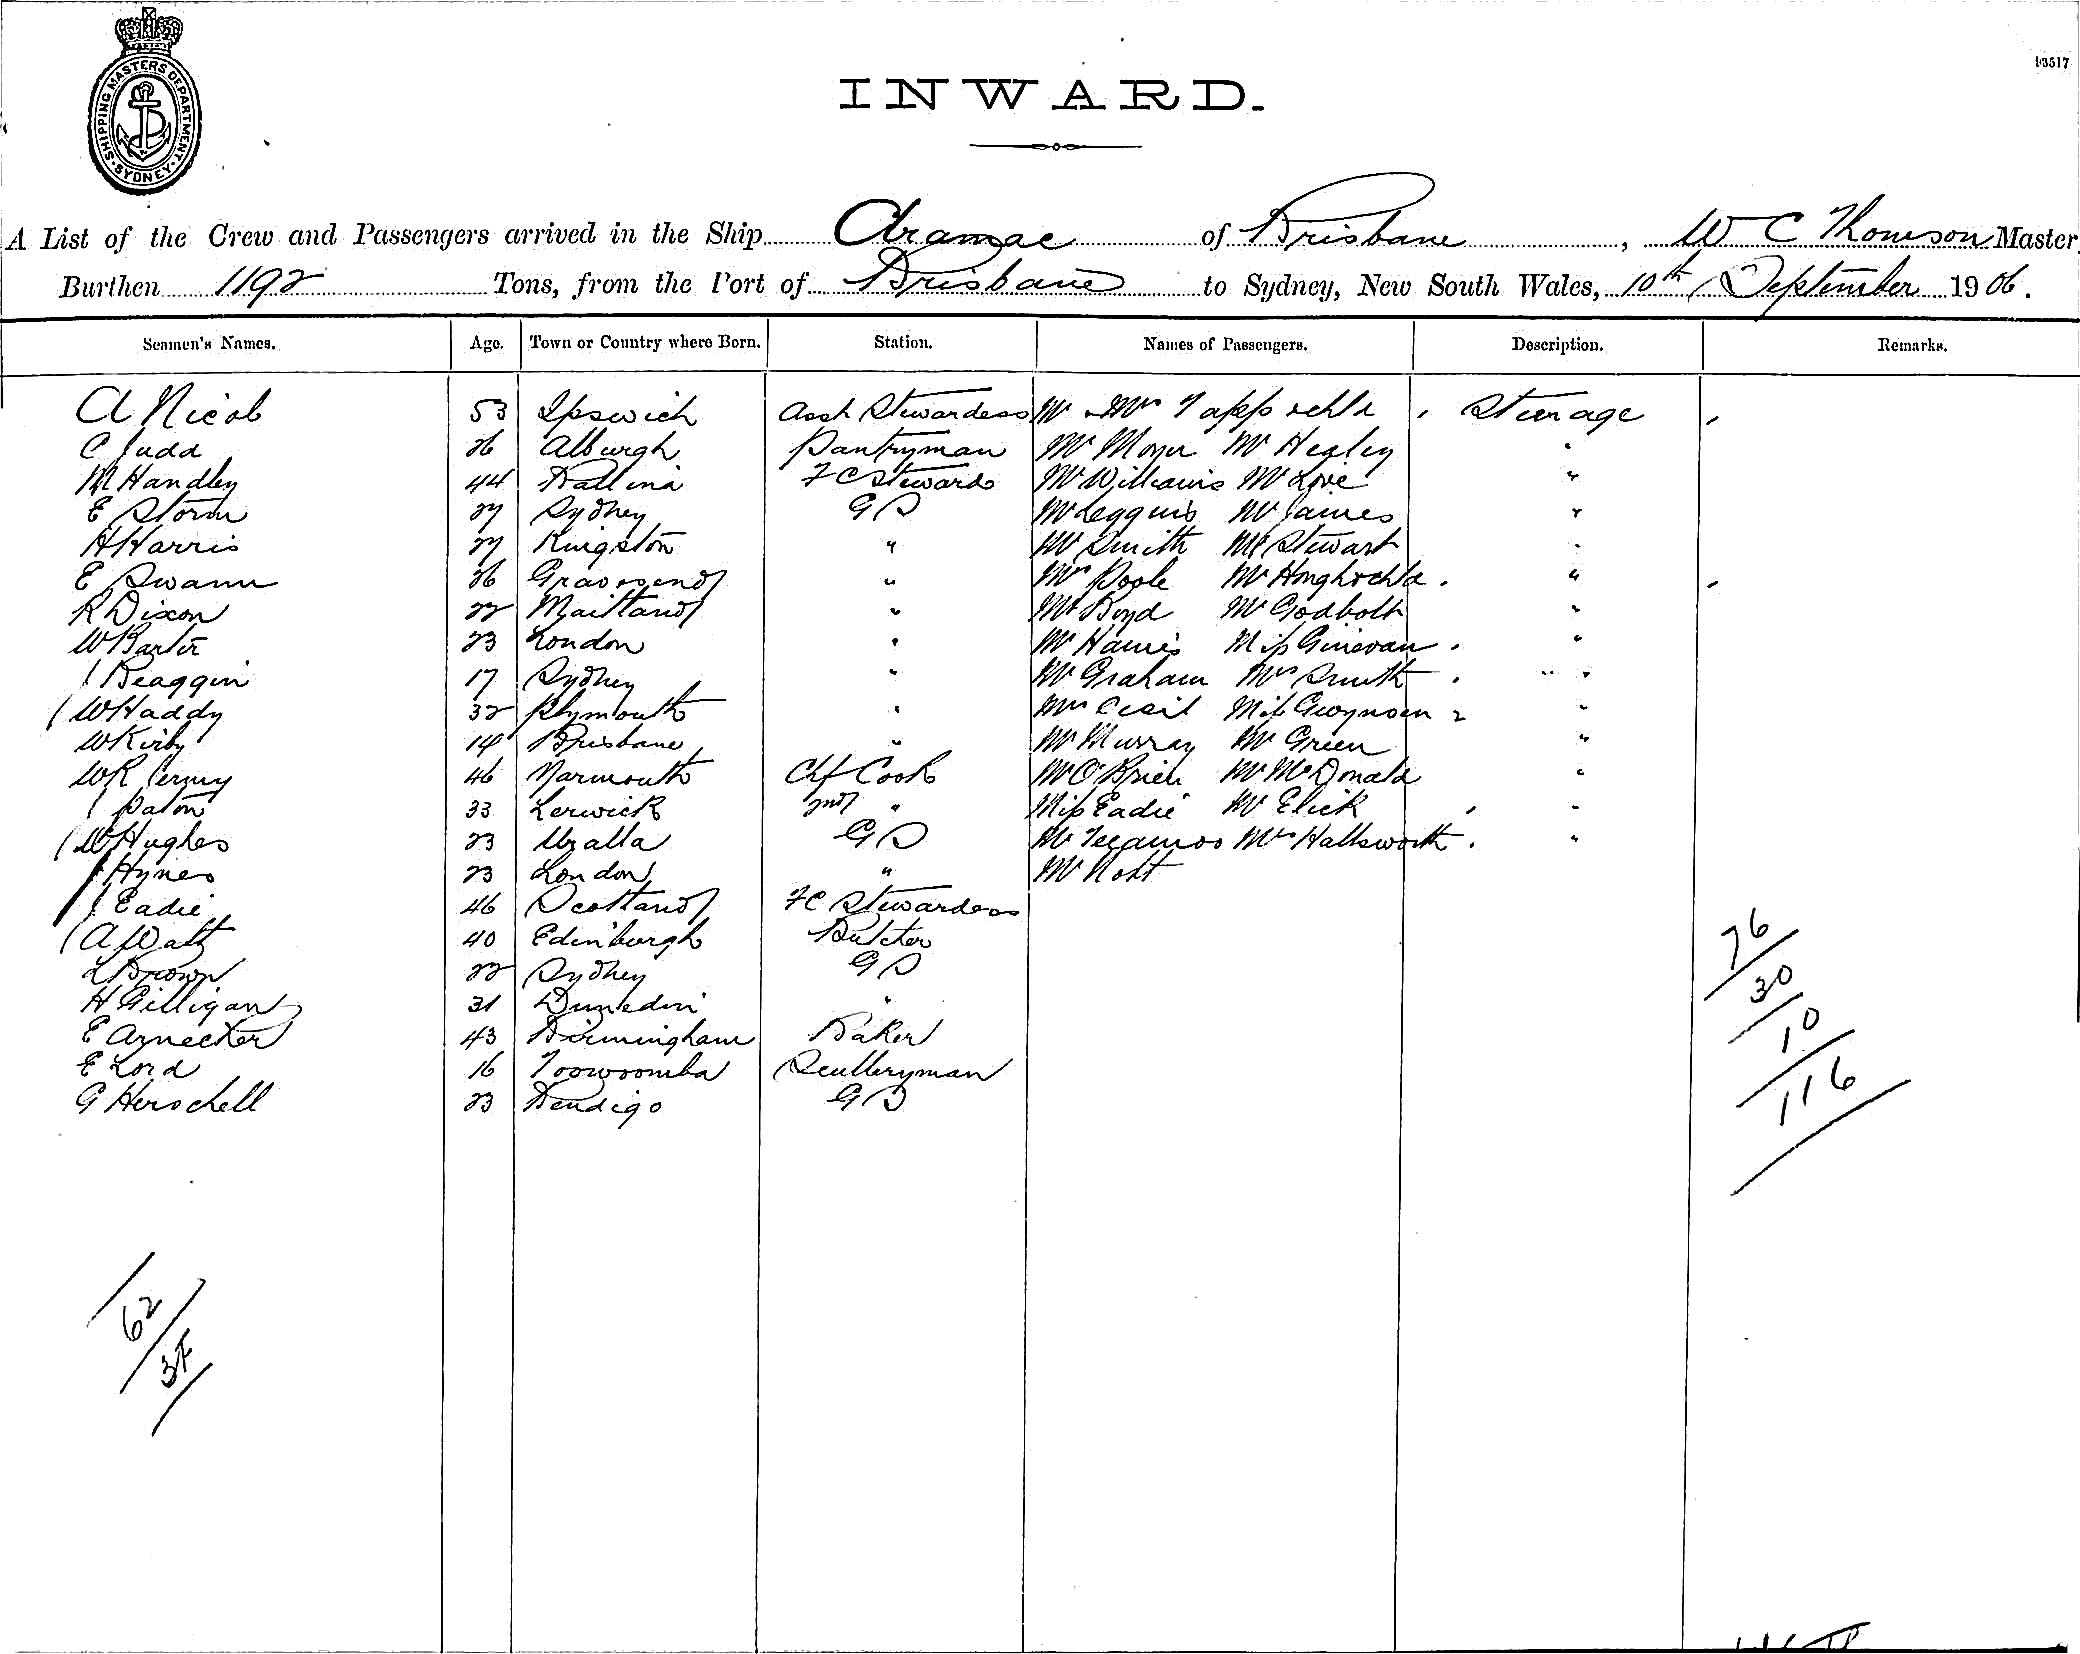 SHIPPING MASTERS DEPARTMENT
SYDNEY
13517
INWARD.
A List of the Crew and Passengers arrived in the Ship Aramac of Brisbane, W C Thomson Master
Burthen 1192 Tons, from the Port of Brisbane to Sydney, New South Wales, 10th September 1906.
Seamen's Names. Age. Town or Country where Born. Station. Names of Passengers. Description. Remarks.
A Nicol 53 Ipswich Asst Stewardess Mr & Mrs Tapp & chld Steerage
C Judd 26 Alburgh Pantryman Mr Moyer Mr Healey "
M Handley 44 Ballina FC Steward Mr Williams Mr Love "
E Storm 27 Sydney GS Mr Leggins Mr James "
H Harris 27 Kingston " Mr Smith Mr Stewart "
E Swann 26 Gravesend " Mrs Poole Mr Hough & chld "
R Dixon 22 Maitland " Mr Boyd Mr Godbolt "
W Barter 23 London " Mr Harris Miss Ginevan "
J Beaggin 17 Sydney " Mr Graham Mrs Smith "
W Haddy 32 Plymouth " Mrs Cecil Miss Gwynsen "
W Kirby 19 Brisbane " Mr Murray Mr Green "
W R 46 Yarmouth Chf Cook Mr O'Brien Mr McDonald "
J Paton 33 Lerwick 2nd " Miss Eadie Mr Elick "
W Hughes 23 Uralla GS Mr Mrs Hallsworth "
J Hynes 23 London " Mr Nott
J Eadie 46 Scotland FC Stewardess
A Watt 40 Edinburgh Butcher
L Brown 22 Sydney GS
H Gilligan 31 Dunedin "
E Arnecker 43 Birmingham Baker
E Lord 16 Toowoomba Sculleryman
G Herschell 23 Bendigo GS
76
30
10
116
62